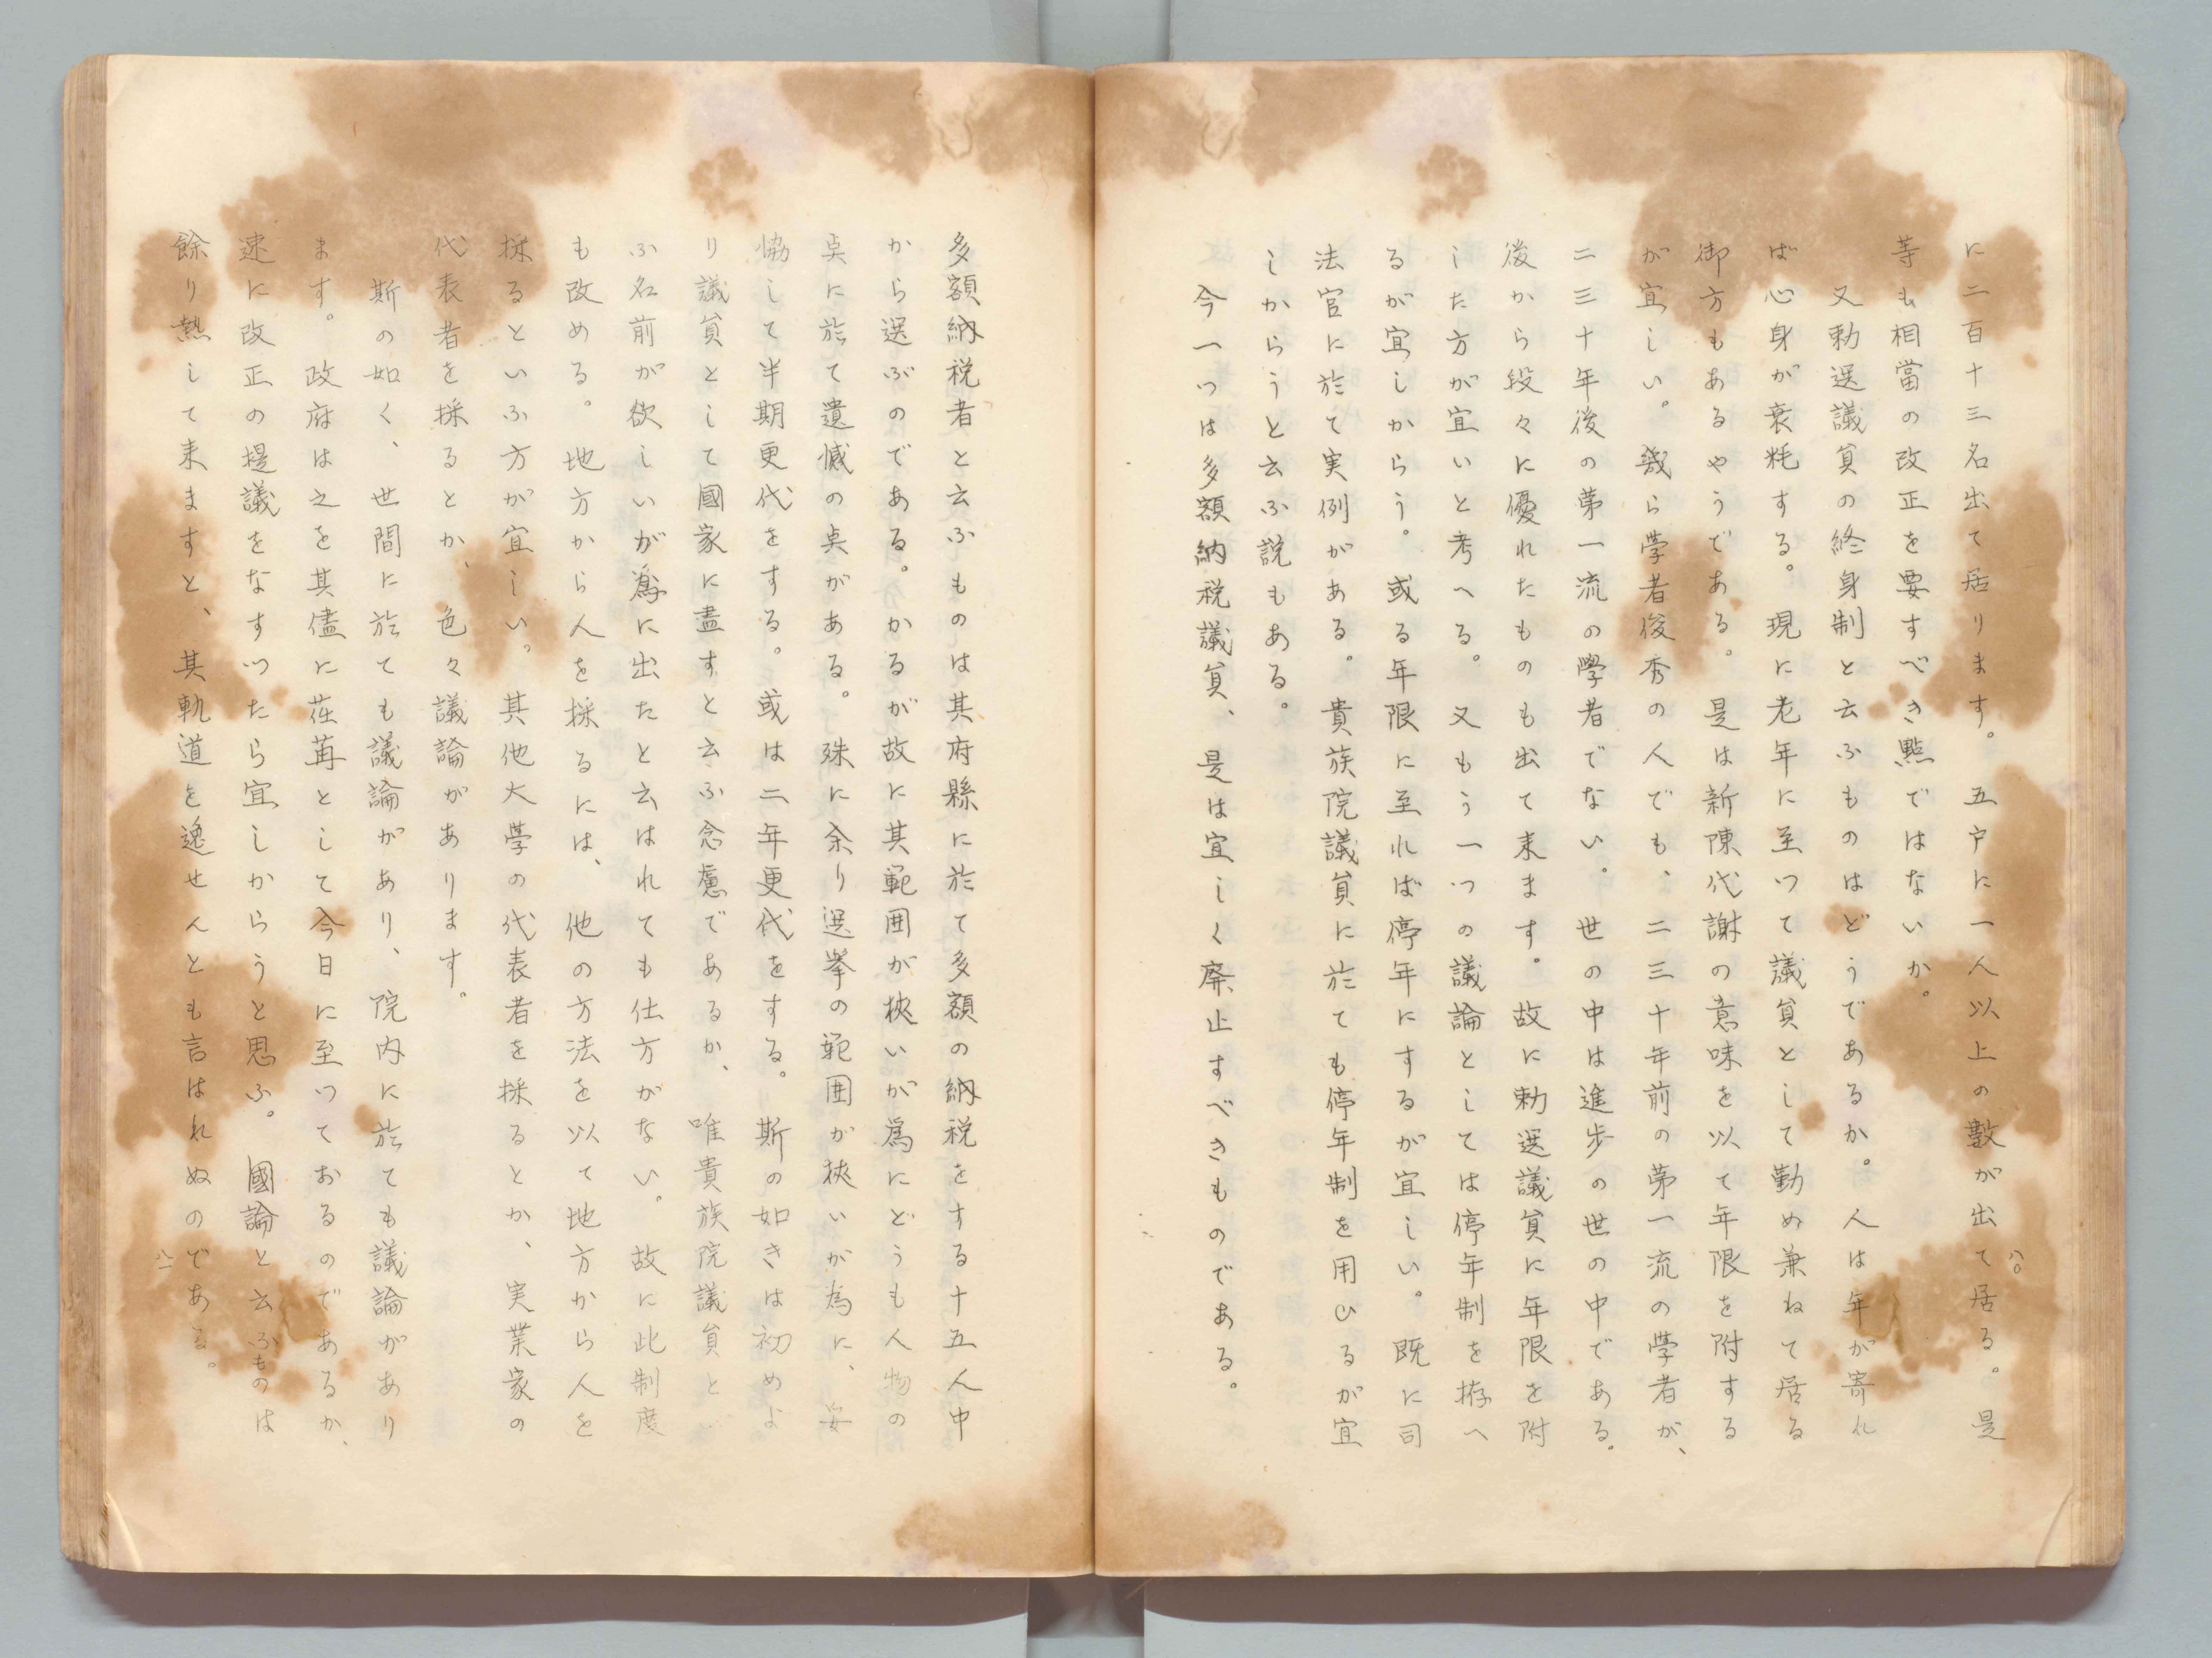 八〇
に二百十三名出て居ります。五戸に一人以上の數が出て居る。是
等も相當の改正を要すべき點ではないか。
又勅選議員の終身制と云ふものはどうであるか。人は年が寄れ
ば心身が衰耗する。現に老年に至つて議員として勤め兼ねて居る
御方もあるやうである。是は新陳代謝の意味を以て年限を附する
が宜しい。幾ら学者俊秀の人でも、二三十年前の第一流の学者が、
二三十年後の第一流の學者でない。世の中は進歩の世の中である。
後から段々に優れたものも出て来ます。故に勅選議員に年限を附
した方が宜いと考へる。又もう一つの議論としては停年制を拵へ
るが宜しからう。或る年限に至れば停年にするが宜しい。既に司
法官に於て実例がある。貴族院議員に於ても停年制を用ひるが宜
しからうと云ふ説もある。
今一つは多額納税議員、是は宜しく廃止すべきものである。
多額納税者と云ふものは其府縣に於て多額の納税をする十五人中
から選ぶのである。かるが故に其範囲が狭いが爲にどうも人物の
奌に於て遺憾の奌がある。殊に余り選挙の範囲が狭いが為に、妥
協して半期更代をする。或は二年更代をする。斯の如きは初めよ
り議員として國家に盡すと云ふ念慮であるか、唯貴族院議員とい
ふ名前が欲しいが爲に出たと云はれても仕方がない。故に此制度
も改める。地方から人を採るには、他の方法を以て地方から人を
採るといふ方が宜しい。其他大學の代表者を採るとか、実業家の
代表者を採るとか、色々議論があります。
斯の如く、世間に於ても議論があり、院内に於ても議論があり
ます。政府は之を其儘に荏苒として今日に至つておるのであるか、
速に改正の提議をなすつたら宜しからうと思ふ。國論と云ふものは
餘り熱して来ますと、其軌道を逸せんとも言はれぬのである。
八一